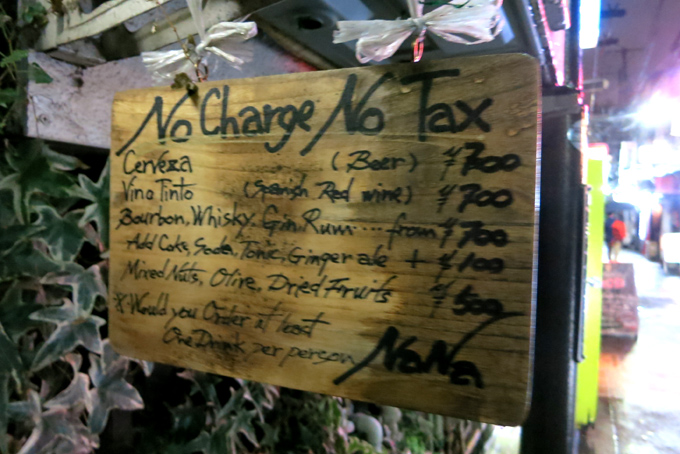 No Charge No Tax
Cerveza (Beer) ¥700
Vino Tinto (Spanish Red wine) ¥700
Bourbon, Whisky, Gin, Rum... from ¥700
Add Coke, Soda, Tonic, Ginger ale + ¥100
Mixed Nuts, Olive, Dried Fruits ¥500
※Would you Order at least
One Drink per person
NaNa